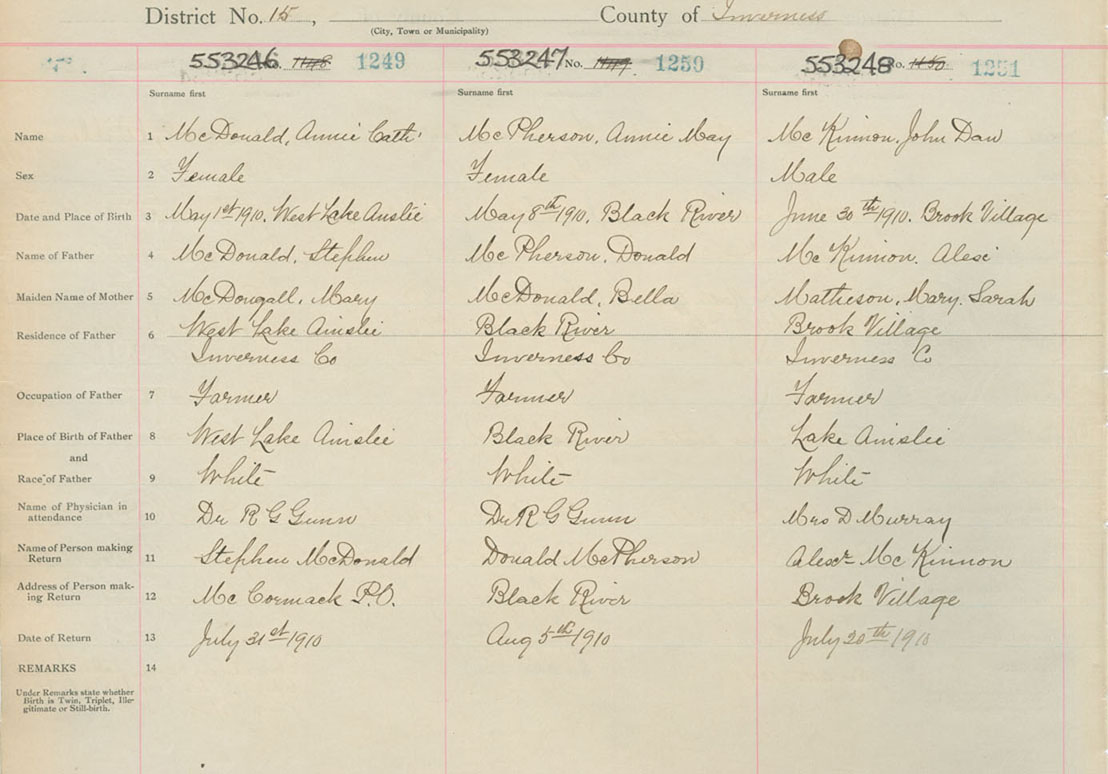 District No. 15, County of Inverness
(City, Town or Municipality)
553246 No. 1249 553247 No. 1250 553248 No. 1251
Surname first Surname first Surname first
Name 1 McDonald, Annie Cath' McPherson, Annie May McKinnon, John Dan
Sex 2 Female Female Male
Date and Place of Birth 3 May 1st 1910, West Lake Ainslie May 8th 1910, Black River June 30th 1910. Brook Village
Name of Father 4 McDonald, Stephen McPherson, Donald McKinnon, Alex
Maiden Name of Mother 5 McDougall, Mary McDonald, Bella Matheson, Mary Sarah
Residence of Father 6 West Lake Ainslie Black River Brook Village
Inverness Co Inverness Co Inverness Co
Occupation of Father 7 Farmer Farmer Farmer
Place of Birth of Father 8 West Lake Ainslie Black River Lake Ainslie
and
Race of Father 9 White White White
Name of Physician in
attendance 10 Dr R G Gunn Dr R G Gunn Mrs D Murray
Name of Person making
Return 11 Stephen McDonald Donald McPherson Alexr McKinnon
Address of Person mak-
ing Return 12 McCormack P.O. Black River Brook Village
Date of Return 13 July 31st 1910 Aug 5th 1910 July 20th 1910
REMARKS 14
Under Remarks state whether
Birth is Twin, Triplet, Ille-
gitimate or Still-birth.